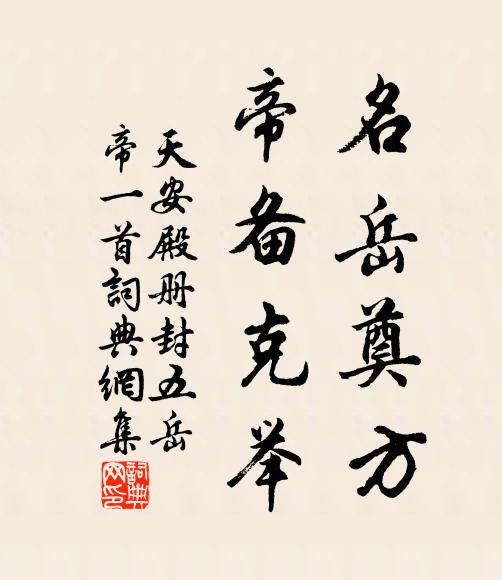 名岳奠方
帝备克举
天安殿册封五岳
帝一首詞典網集
詞典网印